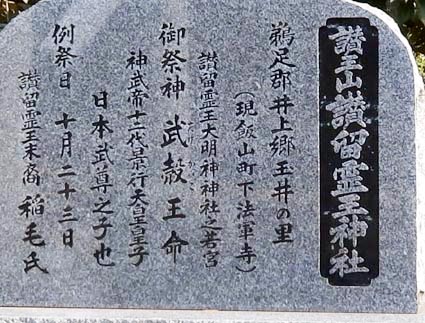 讃王山讃留霊王神社
鵜足郡井上郷玉井の里
(現飯山町下法軍寺)
讃留霊王大明神神社之若宮
御祭神 武殻王命
神武帝十二代景行天皇皇子
日本武尊之子也
例祭日 十月二十三日
讃留霊王末裔 稲毛氏